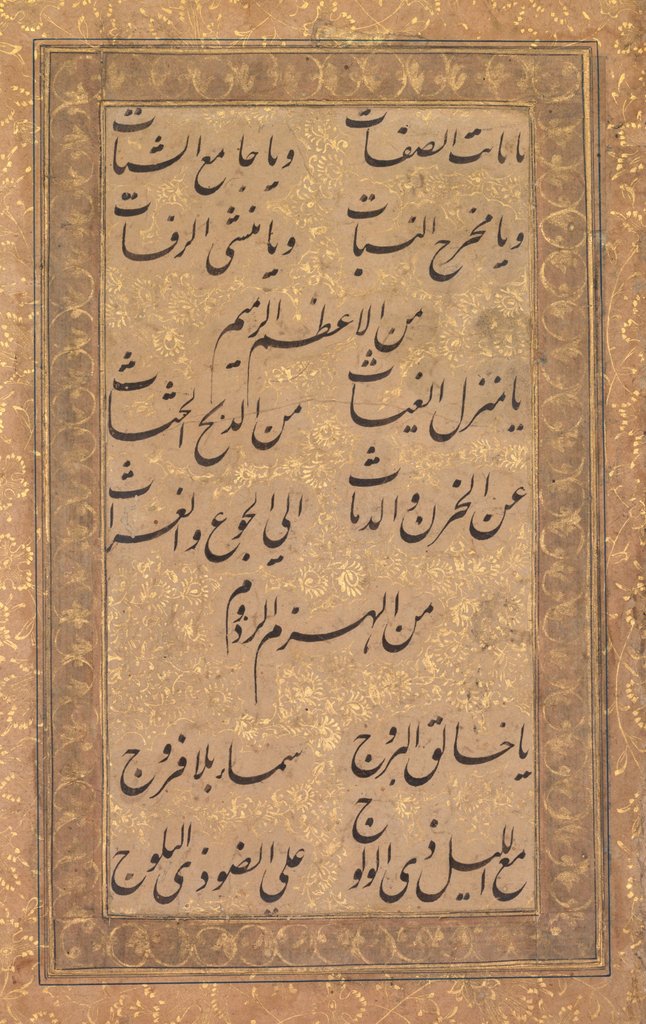 یا ثابت الصفات ویا جامع الشتات
ویا مخرج النبات ویا منشی الرفات
من الاعظم الرمیم
یا منزل الغیاث من الدبح الحثاث
عن الحزن والدماث الی الجوع والغراث
من الهزم الرذوم
یا خالق البروج سماء بلا فروج
مع اللیل ذی الولوج علی الضوء ذی البلوج